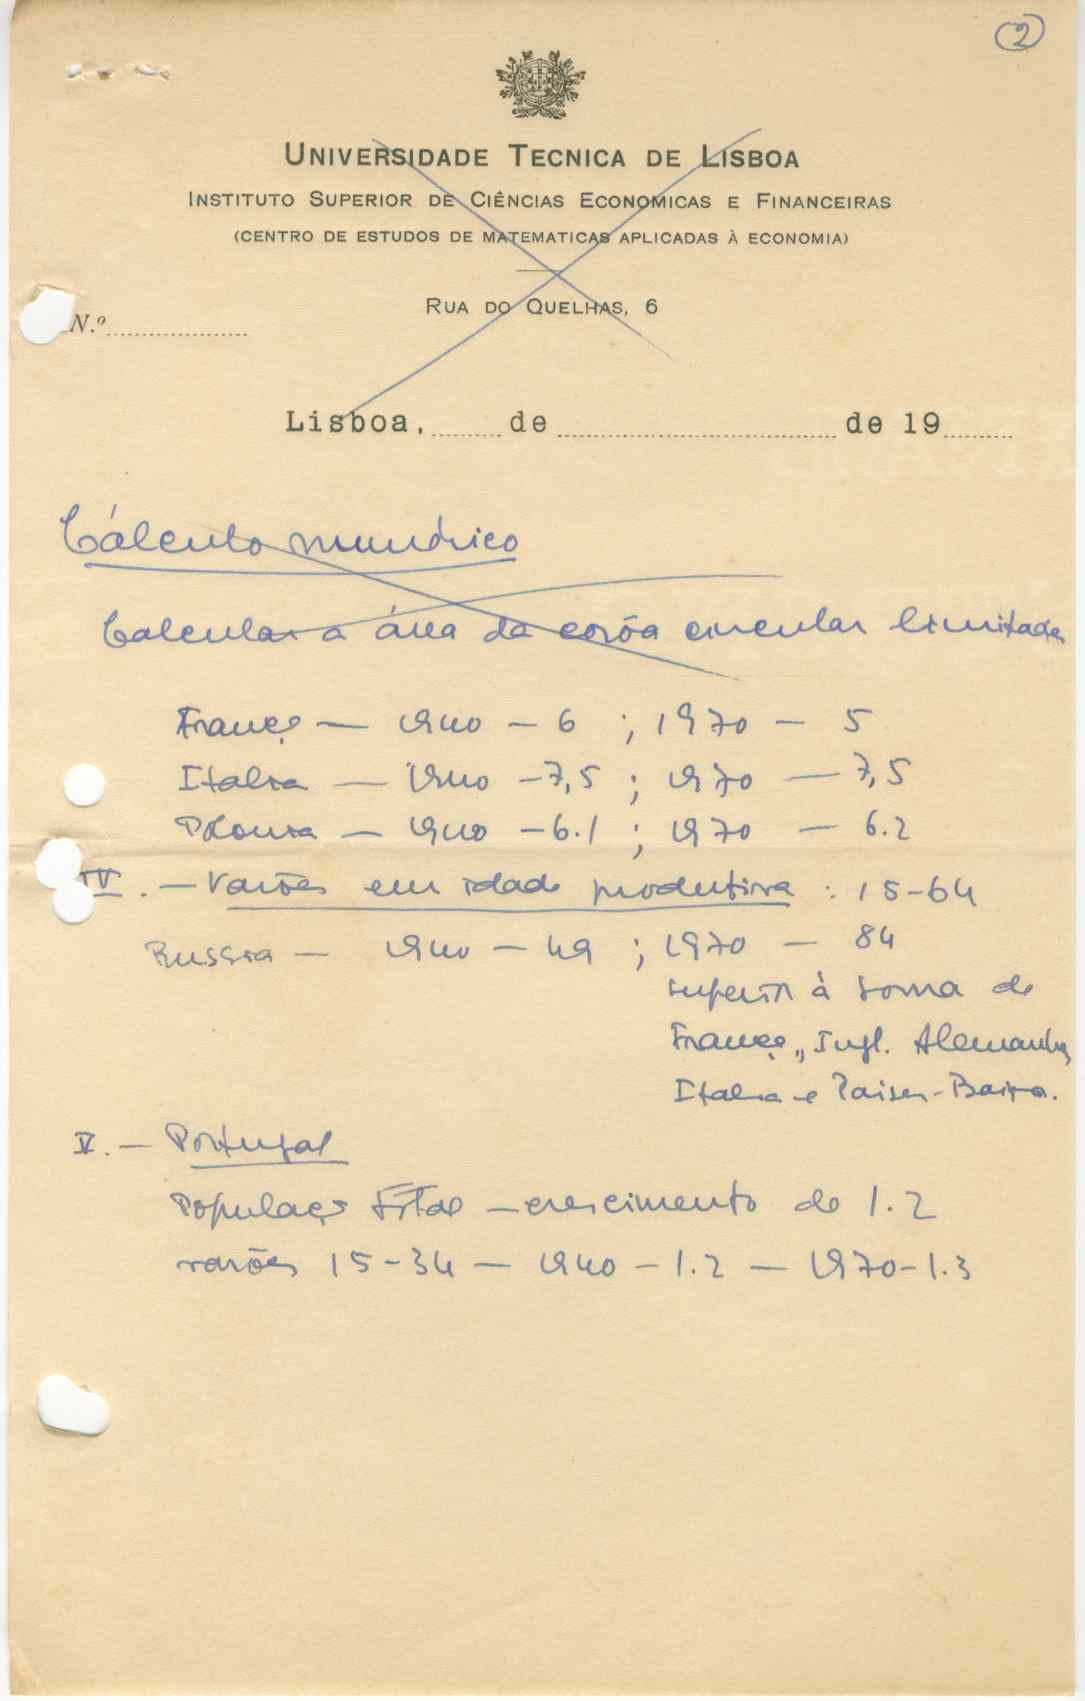 2
UNIVERSIDADE TECNICA DE LISBOA
INSTITUTO SUPERIOR DE CIÊNCIAS ECONOMICAS E FINANCEIRAS
(CENTRO DE ESTUDOS DE MATEMATICAS APLICADAS À ECONOMIA)
RUA DO QUELHAS, 6
N.º
Lisboa, de de 19
Cálculo numérico
Calcular a área da corôa circular limitada
França — 1940 — 6 ; 1970 — 5
Italia — 1940 — 7,5 ; 1970 — 7,5
Polonia — 1940 — 6.1 ; 1970 — 6.2
IV. — Varões em idade produtiva : 15-64
Russia — 1940 — 49 ; 1970 — 84
superior à soma de
França, Ingl. Alemanha,
Italia e Paises-Baixos.
V. — Portugal
População total — crescimento de 1.2
varões 15-34 — 1940 — 1.2 — 1970 — 1.3